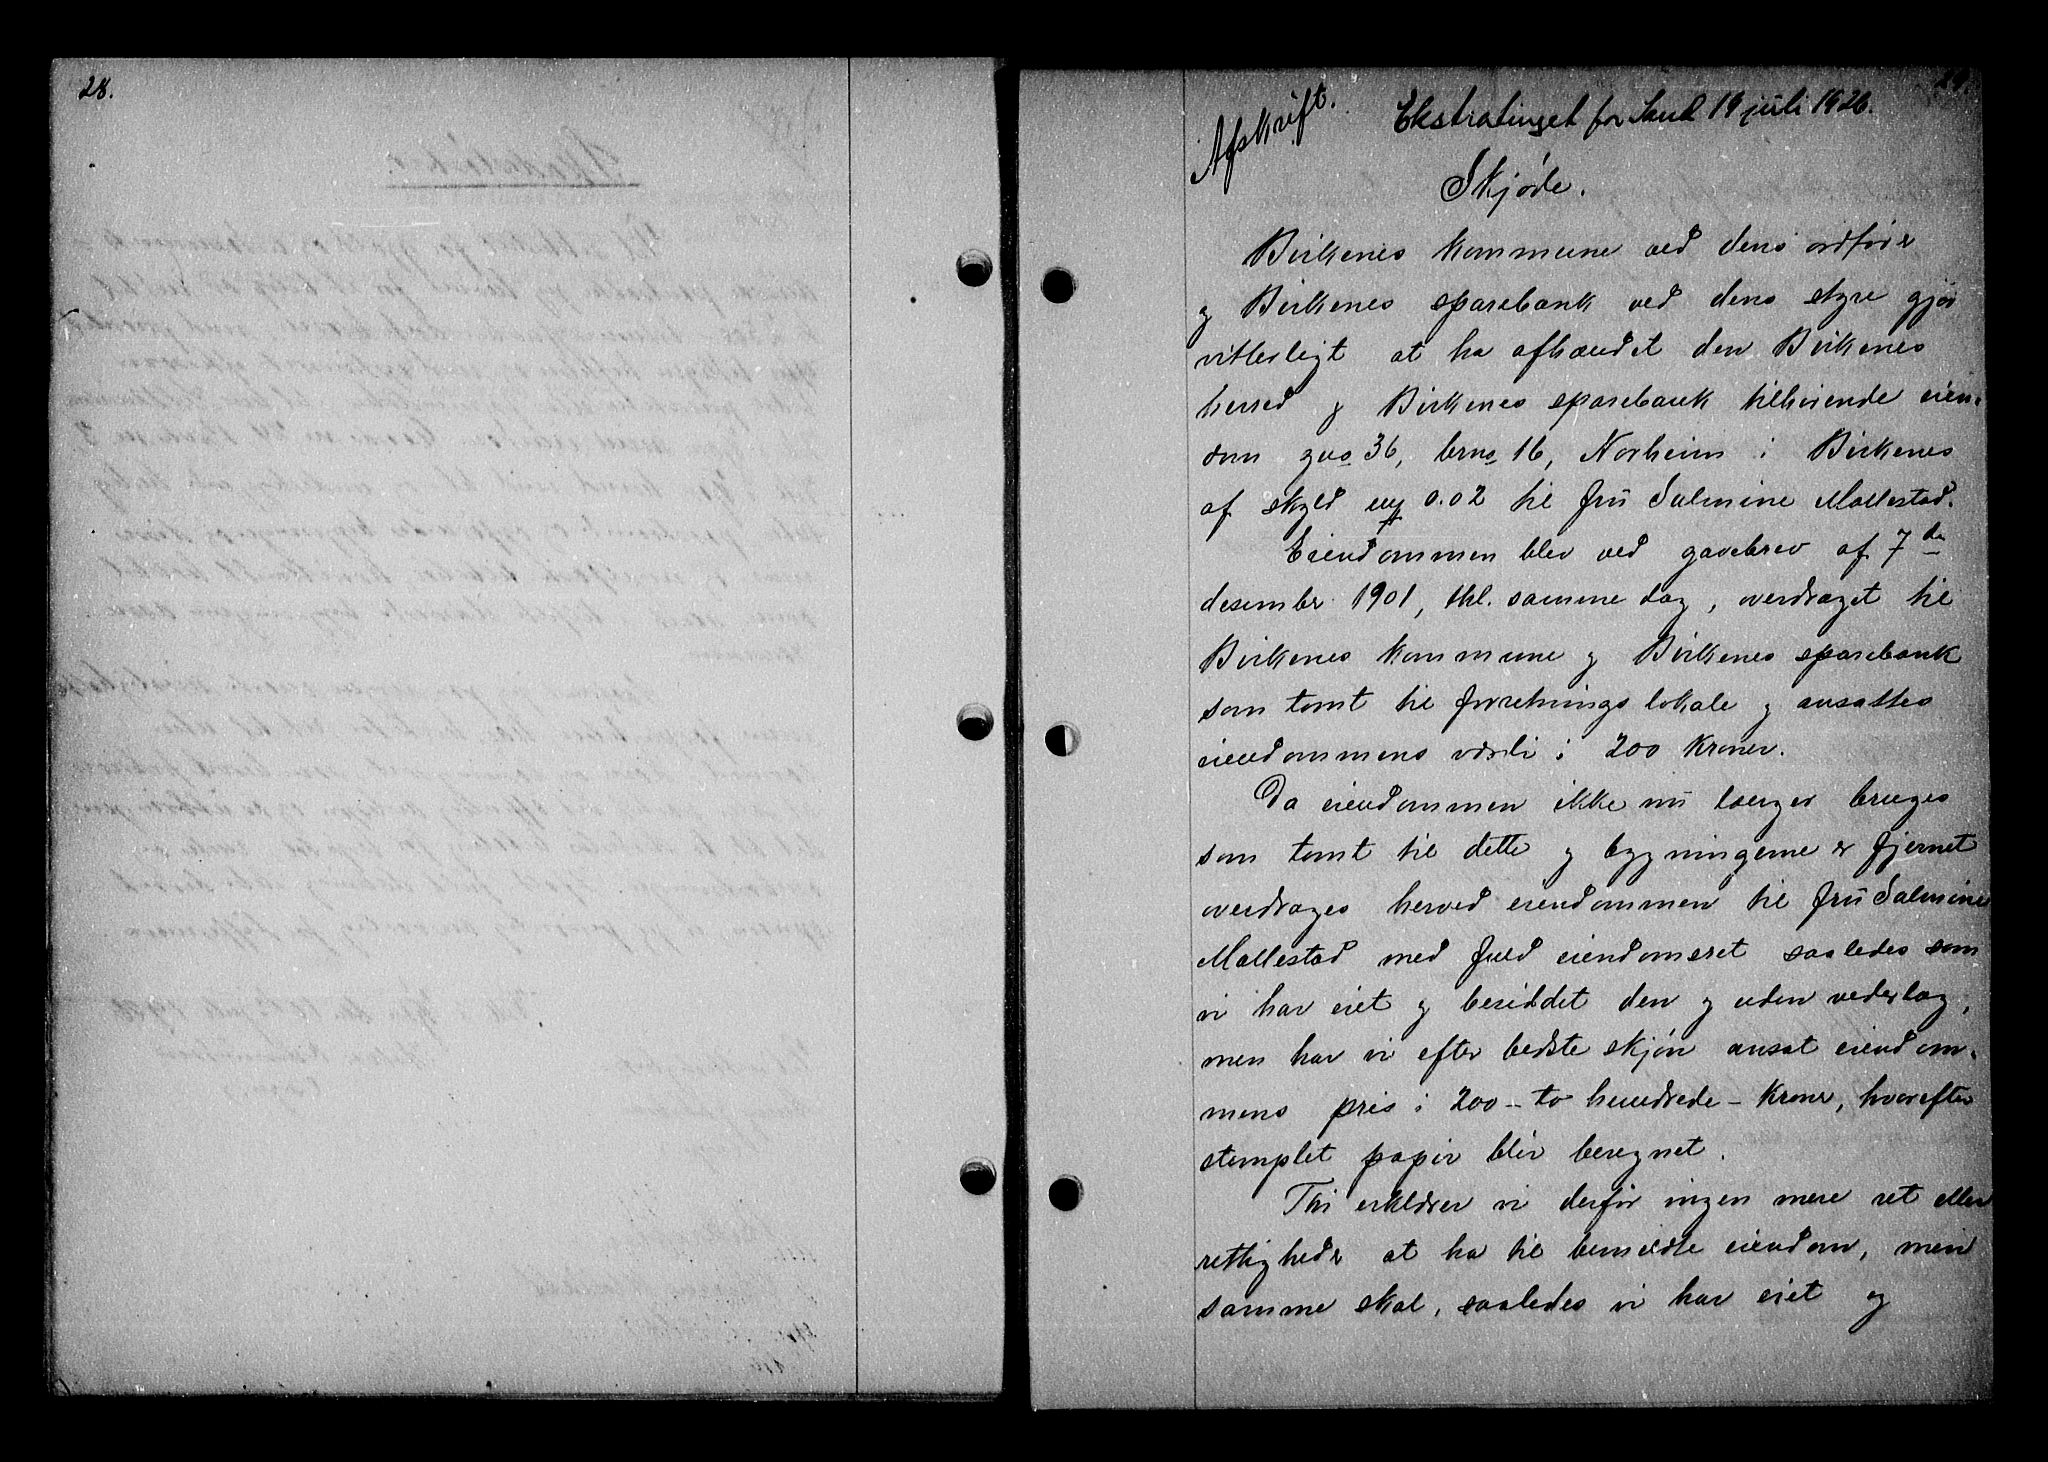 28.
Afskrift.
Ekstratinget for Sand 19 juli 1926.
Skjøde.
Birkenes kommune ved dens ordfører
og Birkenes sparebank ved dens styre gjør
vitterligt at ha afhændet den Birkenes
herred og Birkenes sparebank tilhørende eien-
dom gno 36, brno 16, Norheim i Birkenes
af skyld 0.02 til fru Salmine Mollestad.
Eiendommen blev ved gavebrev af 7de
desember 1901, thl. samme dag, overdraget til
Birkenes kommune og Birkenes sparebank
som tomt til forretningslokale og ansattes
eiendommens værdi i 200 kroner.
Da eiendommen ikke nu længer bruges
som tomt til dette og bygningerne er fjernet
overdrages herved eiendommen til fru Salmine
Mollestad med fuld eiendomsret saaledes som
vi har eiet og besiddet den og uden vederlag,
men har vi efter bedste skjøn ansat eiendom-
mens pris i 200 – to hundrede – kroner, hvorefter
stemplet papir blir beregnet.
Thi erklærer vi derfor ingen mere ret eller
rettigheder at ha til bemeldte eiendom, men
samme skal, saaledes vi har eiet og